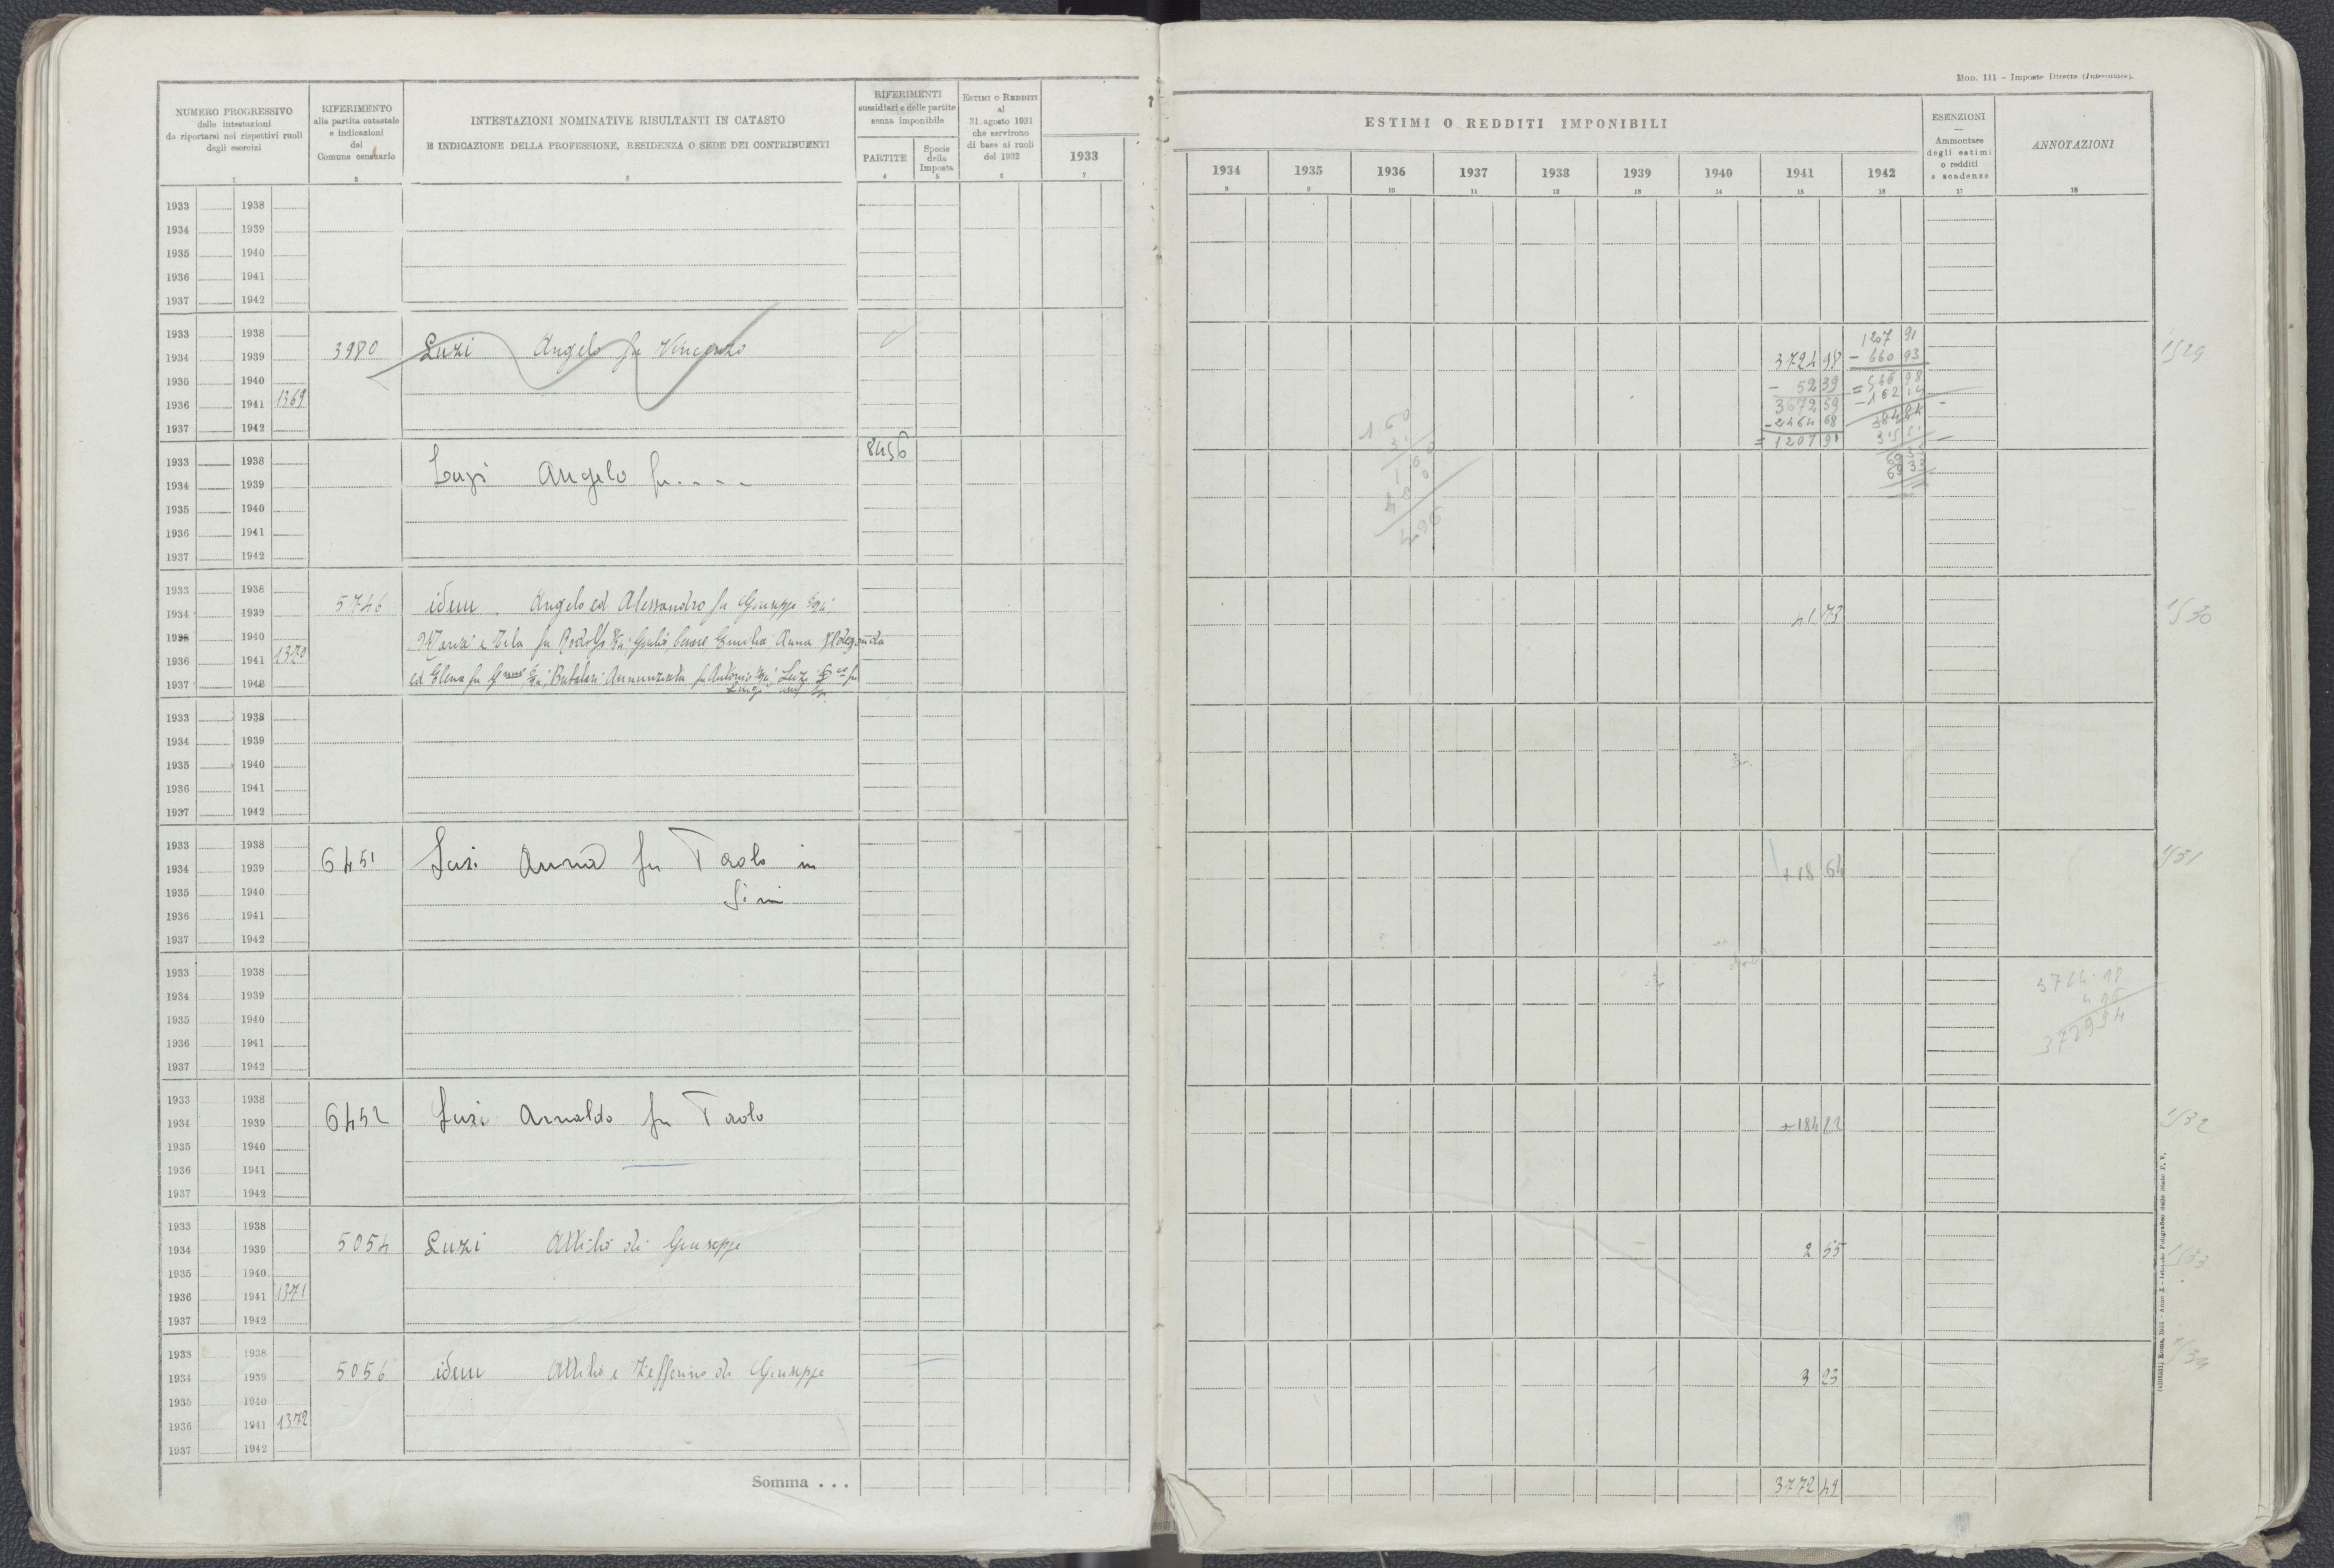 Mod. 111 - Imposte Dirette (Intercalare).
NUMERO PROGRESSIVO
delle intestazioni
da riportarsi nei rispettivi ruoli
degli esercizi
1
RIFERIMENTO
alla partita catastale
e indicazioni
del
Comune censuario
2
INTESTAZIONI NOMINATIVE RISULTANTI IN CATASTO
E INDICAZIONE DELLA PROFESSIONE, RESIDENZA O SEDE DEI CONTRIBUENTI
3
RIFERIMENTI
sussidiari e delle partite
senza imponibile
PARTITE
4
Specie
della
Imposta
5
ESTIMI O REDDITI
al
31 agosto 1931
che servirono
di base ai ruoli
del 1932
6
1933
7
ESTIMI O REDDITI IMPONIBILI
1934 1935 1936 1937 1938 1939 1940 1941 1942
8 9 10 11 12 13 14 15 16
ESENZIONI
Ammontare
degli estimi
o redditi
e scadenze
17
ANNOTAZIONI
18
1933 1938
1934 1939
1935 1940
1936 1941
1937 1942
1933 1938 1207 91
1934 1939 3980 Luzi Angelo fu Vincenzo 3724 98 - 660 93
1935 1940 - 52 39 = 546 98
1936 1941 1369 3672 59 - 162 14
1937 1942 - 2464 68 384 84
= 1207 91
1933 1938 8456
1934 1939 Luzi Angelo fu - - - -
1935 1940
1936 1941
1937 1942
1933 1938
1934 1939 5746 idem . Angelo ed Alessandro fu Giuseppe
1935 1940
1936 1941 1370
1937 1942 ed Elena fu
1933 1938
1934 1939
1935 1940
1936 1941
1937 1942
1933 1938
1934 1939 6451 Luzi Anna fu Paolo in + 18 64
1935 1940
1936 1941
1937 1942
1933 1938
1934 1939
1935 1940
1936 1941
1937 1942
1933 1938
1934 1939 6452 Luzi Arnaldo fu Paolo + 184 22
1935 1940
1936 1941
1937 1942
1933 1938
1934 1939 5054 Luzi Attilio di Giuseppe 2 55
1935 1940
1936 1941 1371
1937 1942
1933 1938
1934 1939 5056 idem Attilio e Zefferino di Giuseppe 3 23
1935 1940
1936 1941 1372
1937 1942
Somma . . . 3772 49